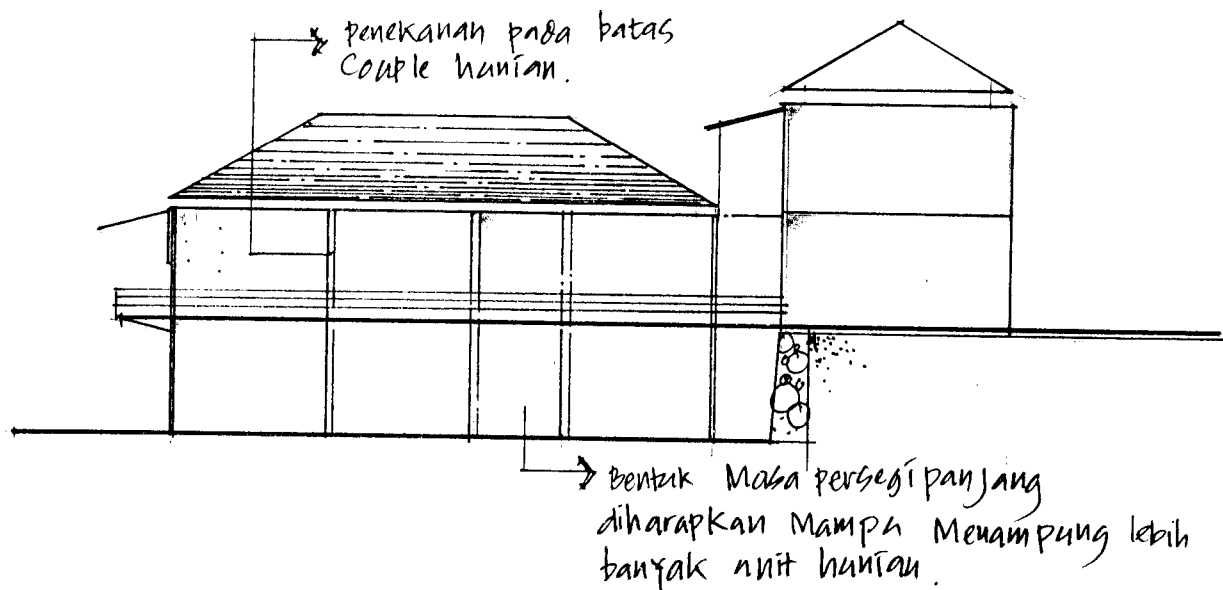 penekanan pada batas
Couple hunian.
Bentuk Masa persegi panjang
diharapkan Mampu Menampung lebih
banyak unit hunian.